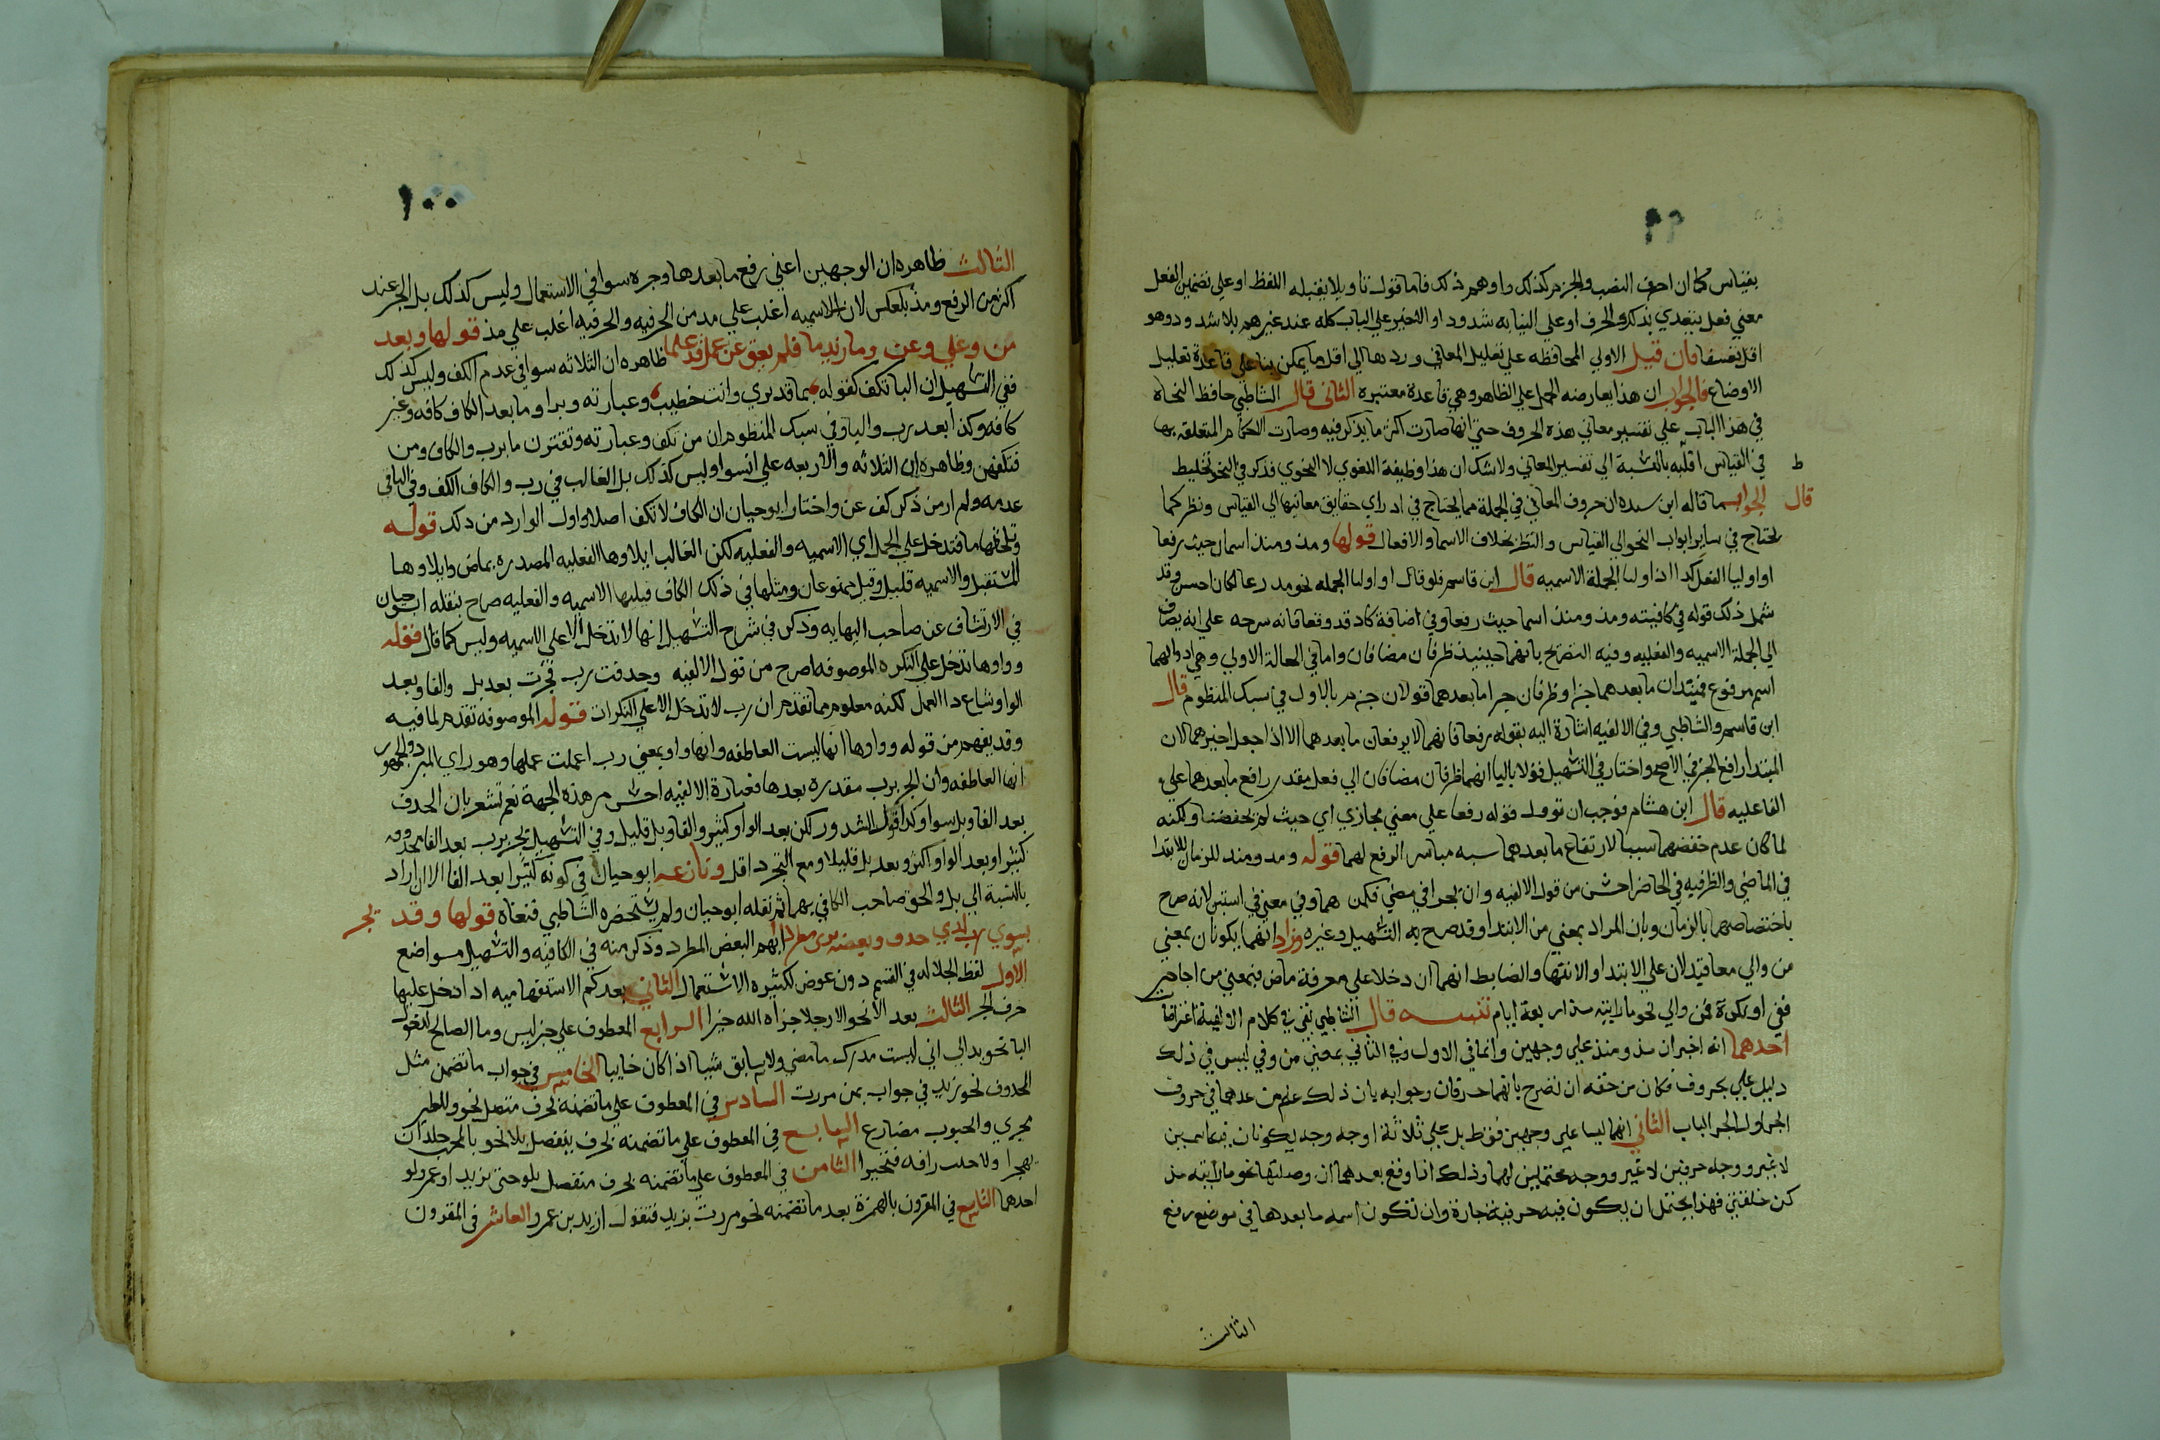 ٩٩
بقياس كما ان احرف النصب والجزم كذلك وما وهم ذلك فاما مؤول تاويلا يقبله اللفظ او علي تضمين الفعل
معني فعل يتعدي بذلك الحرف او علي النيابه شذودا والاخير علي الباب كله عند غيرهم بلا شذوذ وهو
اقل تعسفا فان قيل الاولي المحافظه علي تقليل المعاني وردها الي اقل ما يمكن بنا علي قاعدة تقليل
الاوضاع فالجواب ان هذا يعارضه الحمل علي الظاهر وهي قاعدة معتبره الثاني قال الشاطبي حافظ النحاة
في هذا الباب علي تفسير معاني هذه الحروف حتي انها صارت اكثر ما يذكر فيه وصارت الاحكام المتعلقه بها
في القياس اقليه بالنسبة الي تفسير المعاني ولا شك ان هذا وظيفة اللغوي لا النحوي فذكره في النحو تخليط
قال
الجواب ما قاله ابن سيده ان حروف المعاني في الجملة مما يحتاج في ادراك حقايق معانيها الي القياس ونظر كما
يحتاج في ساير ابواب النحو الي القياس والنظر بخلاف الاسما والافعال قولها ومذ ومنذ اسمان حيث رفعا
او اوليا الفعل كذا اذا اوليا الجملة الاسميه قال ابن قاسم فلو قال او اوليا الجمله نحو مذ دعا لكان احسن وقد
شمل ذلك قوله في كافيته ومذ ومنذ اسما حيث رفعا وفي اضافة كاد قد وقعا فانه شرحه علي انه يضاف
الي الجملة الاسميه والفعليه وفيه التصريح بانهما حينيذ ظرفان مضافان واما في الحالة الاولي وهي اذا وليهما
اسم مرفوع فمبتدان ما بعدهما خبر او ظرفان خبرا ما بعدهما قولان جزم بالاول في سبك المنظوم قال
ابن قاسم والشاطبي وفي الالفيه اشارة اليه بقوله رفعا فانهما لا يرفعان ما بعدهما الا اذا جعل اخبرهما لان
المبتدا رافع الخبر في الاصح واختار في التسهيل قولا ثالثا انهما ظرفان مضافان الي فعل مقدر رافع ما بعدهما علي
الفاعليه قال ابن هشام فوجب ان تؤول قوله رفعا علي معني مجازي اي حيث لم يخفضا ولكنه
لما كان عدم خفضهما سببا لارتفاع ما بعدهما نسبه مباشر الرفع لهما قوله ومذ ومنذ للزمان للابتدا
في الماضي والظرفيه في الحاضر احسن من قول الالفيه وان يجرا في مضي فكمن هما وفي معني في استبن لانه صرح
باختصاصهما بالزمان وبان المراد بمعني من الابتدا وقد صرح به التسهيل وغيره وزاد انهما يكونان بمعني
من والي معا فتدلان علي الابتدا والانتها والضابط انهما ان دخلا علي معرفة ماض فبمعني من او حاضر
ففي او نكرة فمن والي نحو ما رايته مذ اربعة ايام تنبيه قال الشاطبي بقي في كلام الالفية اعتراضا
احدهما انه اخبر ان مذ ومنذ علي وجهين وانما في الاول وفي الثاني بمعني من وفي ليس في ذلك
دليل علي بحروف فكان من حقه ان يصرح بانهما حرفان وجوابه بان ذلك علم من عدهما في حروف
الجر اول الجر الباب الثاني انهما ليسا علي وجهين فقط بل علي ثلاثة اوجه وجه يكونان فيه اسمين
لا غير ووجه حرفين لا غير ووجه محتملين لهما وذلك اذا وقع بعدهما ان وصلتها نحو ما رايته مذ
كن خلفتني فهذا يحتمل ان يكون فيه حرفية جارة وان تكون اسمه ما بعدها في موضع رفع
الثالث
١٠٠
الثالث ظاهره ان الوجهين اعني رفع ما بعدها وجره سوا في الاستعمال وليس كذلك بل الجر عند
اكثر من الرفع ومذ بالعكس لان الاسميه اغلب علي مذ من الحرفيه والحرفيه اغلب علي منذ قولها وبعد
من وعلي وعن وما زيد ما فلم يعق عن عمل قد علما ظاهره ان الثلاثه سوا في عدم الكف وليس كذلك
ففي التسهيل ان البا تكف كقوله بما قد يري وانت خطيب وعبارته ويزاد ما بعد الكاف كافه وغير
كافه وكذا بعد رب والبا وفي سبك المنظوم ان من تكف وعبارته وتقترن ما برب والكاف ومن
فتكفهن وظاهره ان الثلاثه والاربعه علي السوا وليس كذلك بل الغالب في رب والكاف الكف وفي الباقي
عدمه ولم ار من ذكر كف عن واختار ابو حيان ان الكاف لا تكف اصلا واول الوارد من ذلك قوله
وتلحقها ما فتدخل علي الجمل اي الاسميه والفعليه لكن الغالب ايلاوها الفعليه المصدره بماض وايلاوها
المستقبل والاسميه قليل وقيل ممنوعان ومثلها في ذلك الكاف فيليها الاسميه والفعليه صرح بنقله ابو حيان
في الارتشاف عن صاحب النهايه وذكر في شرح التسهيل انها لا تدخل الا علي الاسميه وليس كما قال فقوله
وواوها تدخل علي النكره الموصوفه اصرح من قول الالفيه وحذفت رب فجرت بعد بل والفا وبعد
الواو شاع ذا العمل لكنه معلوم مما تقدم ان رب لا تدخل الا علي النكرات قوله الموصوفه تقدم لما فيه
وقد يفهم من قوله وواوها انها ليست العاطفه وانها واو بمعني رب اعملت عملها وهو راي المبرد والجمهور
انها العاطفه وان الجر برب مقدره بعدها فعبارة الالفيه احسن من هذه الجهة نعم تشعر بان الحذف
بعد الفا وبل سوا وكذا قول الشذور لكن بعد الواو كثير والفا وبل قليل وفي التسهيل يجر برب بعد الفا محذوفه
كثيرا وبعد الواو اكثر وبعد بل قليلا ومع التجرد اقل ونازعه ابو حيان في كونه كثيرا بعد الفا الا ان اراد
بالنسبة الي بل والحق صاحب الكافي بهما ثم نقله ابو حيان ولم يستحضره الشاطبي فنفاه قولها وقد يجر
بسوي رب لدي حذف وبعضه يري مطردا ابهم البعض المطرد وذكر منه في الكافيه والتسهيل مواضع
الاول لفظ الجلاله في القسم دون عوض لكثرة الاستعمال الثاني بعد كم الاستفهاميه اذا دخل عليها
حرف الجر الثالث بعد الا نحو الا رجلا جزاه الله خيرا الرابع المعطوف علي خبر ليس وما الصالح لدخول
البا نحو بدا لي اني لست مدرك ما مضي ولا سابق شيا اذا كان جائيا الخامس في جواب ما تضمن مثل
المحذوف نحو زيد في جواب بمن مررت السادس في المعطوف علي ما تضمنه بحرف متصل نحو وللطير
مجري والجنوب مصارع السابع في المعطوف علي ما تضمنه بحرف منفصل بلا نحو ما لمحب جلد ان
يهجرا ولا حبيب رافة فيجبرا الثامن في المعطوف علي ما تضمنه بحرف منفصل بلو حتي بزيد او عمرو لو
احدهما التاسع في المقرون بالهمزة بعد ما تضمنه نحو مررت بزيد فتقول ازيد بن عمرو العاشر في المقرون